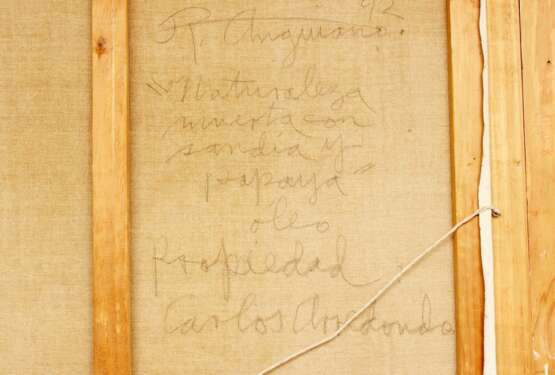 92
R. Anguiano.
"Naturaleza
muerta con
sandía y
papaya"
oleo
Propiedad.
Carlos Arredondo